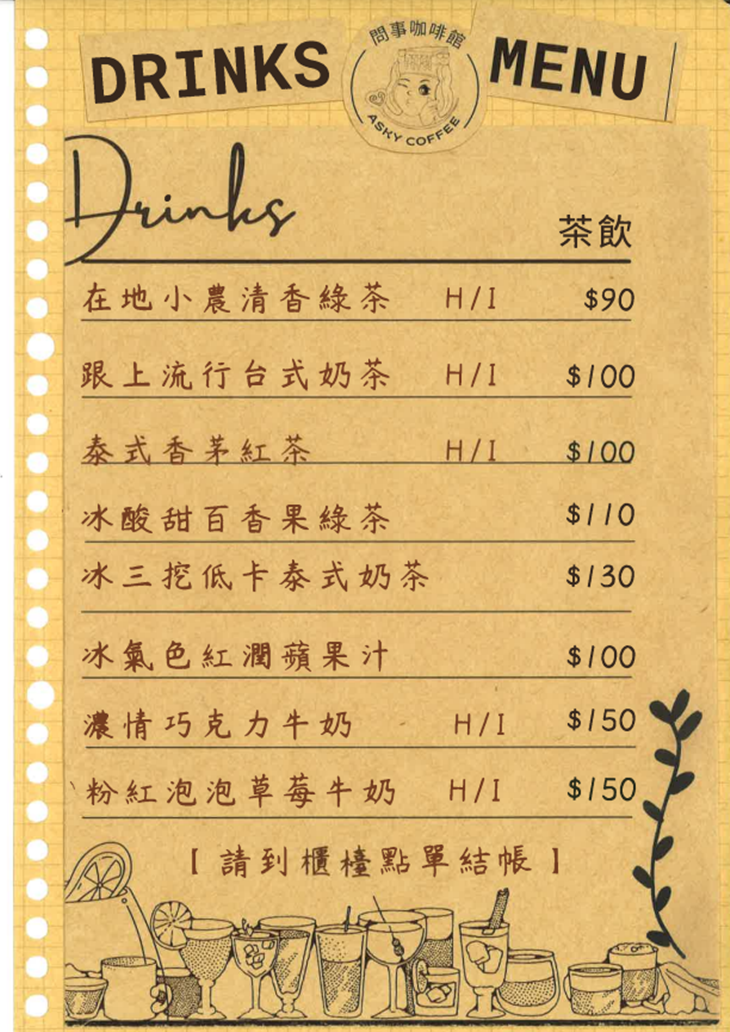 DRINKS MENU
問事咖啡館
ASKY COFFEE
Drinks
茶飲
在地小農清香綠茶 H/I $90
跟上流行台式奶茶 H/I $100
泰式香茅紅茶 H/I $100
冰酸甜百香果綠茶 $110
冰三挖低卡泰式奶茶 $130
冰氣色紅潤蘋果汁 $100
濃情巧克力牛奶 H/I $150
粉紅泡泡草莓牛奶 H/I $150
【請到櫃檯點單結帳】